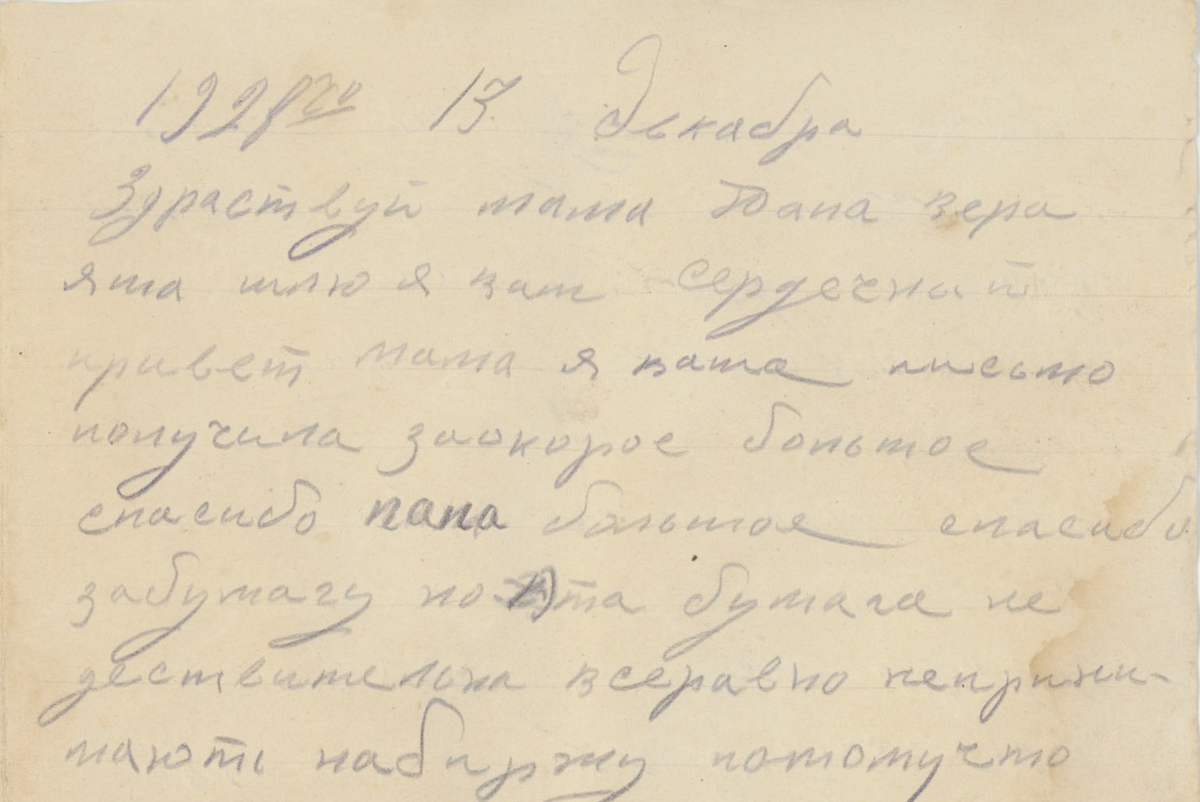 1928го 13 Декабра
Здраствуй мама Папа вера
яша шлю я вам сердечнай
привет мама я ваша письмо
получила заскорое большое
спасибо папа большое спасибо
забумагу но эта бумага не
дествительна всеравно неприни-
мають набиржу потомучто